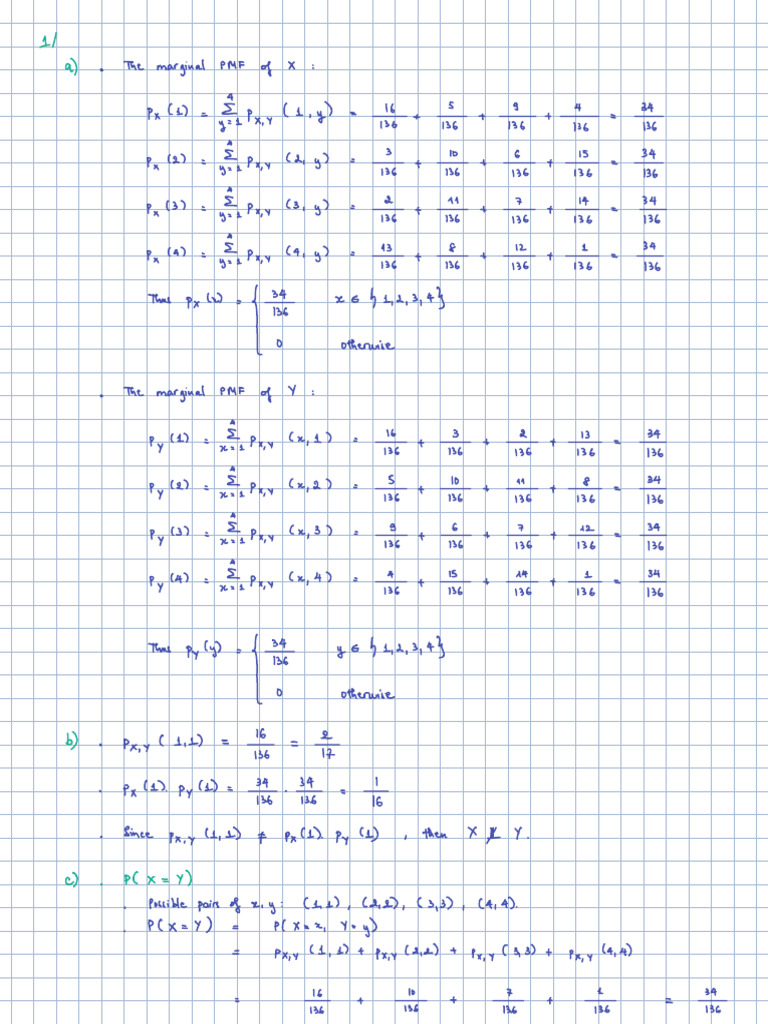 1/
a) . The marginal PMF of X :
p_X (1) = ∑_{y=1}^{4} p_{X,Y} (1, y) = 16/136 + 5/136 + 9/136 + 4/136 = 34/136
p_X (2) = ∑_{y=1}^{4} p_{X,Y} (2, y) = 3/136 + 10/136 + 6/136 + 15/136 = 34/136
p_X (3) = ∑_{y=1}^{4} p_{X,Y} (3, y) = 2/136 + 11/136 + 7/136 + 14/136 = 34/136
p_X (4) = ∑_{y=1}^{4} p_{X,Y} (4, y) = 13/136 + 8/136 + 12/136 + 1/136 = 34/136
Thus p_X (x) = { 34/136 x ∈ {1, 2, 3, 4}
0 otherwise
. The marginal PMF of Y :
p_Y (1) = ∑_{x=1}^{4} p_{X,Y} (x, 1) = 16/136 + 3/136 + 2/136 + 13/136 = 34/136
p_Y (2) = ∑_{x=1}^{4} p_{X,Y} (x, 2) = 5/136 + 10/136 + 11/136 + 8/136 = 34/136
p_Y (3) = ∑_{x=1}^{4} p_{X,Y} (x, 3) = 9/136 + 6/136 + 7/136 + 12/136 = 34/136
p_Y (4) = ∑_{x=1}^{4} p_{X,Y} (x, 4) = 4/136 + 15/136 + 14/136 + 1/136 = 34/136
Thus p_Y (y) = { 34/136 y ∈ {1, 2, 3, 4}
0 otherwise
b) . p_{X,Y} (1,1) = 16/136 = 2/17
. p_X (1). p_Y (1) = 34/136 . 34/136 = 1/16
. Since p_{X,Y} (1,1) ≠ p_X (1). p_Y (1) , then X ⊥̸ Y.
c) . P( X = Y)
. Possible pairs of x, y : (1,1) , (2,2) , (3,3) , (4,4).
. P( X = Y) = P( X = x, Y = y)
= p_{X,Y} (1,1) + p_{X,Y} (2,2) + p_{X,Y} (3,3) + p_{X,Y} (4,4)
= 16/136 + 10/136 + 7/136 + 1/136 = 34/136